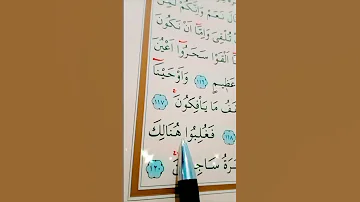 قَالَ نَعَمْ وَإِنَّكُمْ لَمِنَ
تُلْقِيَ وَإِمَّا أَنْ نَكُونَ
أَلْقَوْا سَحَرُوا أَعْيُنَ
عَظِيمٍ ١١٦ وَأَوْحَيْنَا
مَا يَأْفِكُونَ ١١٧
١١٨ فَغُلِبُوا هُنَالِكَ
١٢٠